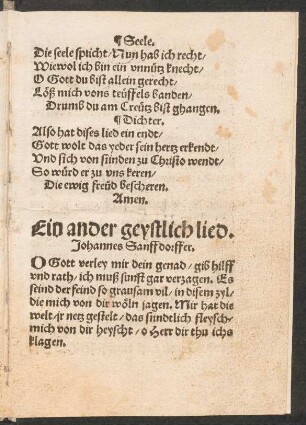 ¶ Seele.
Die seele spricht/ Nun hab ich recht/
Wiewol ich bin ein vnnütz knecht/
O Gott du bist allein gerecht/
Löß mich vons teüffels banden/
Drumb du am Creütz bist ghangen.
¶ Dichter.
Also hat dises lied ein endt/
Gott wolt das yeder sein hertz erkendt/
Vnd sich von sünden zu Christo wendt/
So würd er zu vns keren/
Die ewig freüd bescheren.
Amen.
Ein ander geystlich lied.
Johannes Sanffdorffer.
O Gott verley mir dein genad/ gib hilff
vnd rath/ ich muß sunst gar verzagen. Es
seind der feind so grausam vil/ in disem zyl/
die mich von dir wöln jagen. Mir hat die
welt/ jr netz gestelt/ das sündtlich fleysch-
mich von dir heyscht/ o Herr dir thu ichs
klagen.